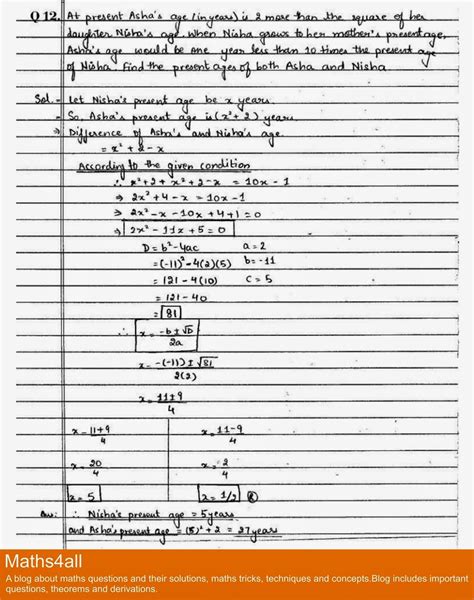 Q 12. At present Asha's age (in years) is 2 more than the square of her
daughter Nisha's age. When Nisha grows to her mother's present age,
Asha's age would be one year less than 10 times the present age
of Nisha. Find the present ages of both Asha and Nisha.
Sol.- Let Nisha's present age be x years.
- So, Asha's present age is (x²+2) years.
⇒ Difference of Asha's and Nisha's age.
= x² + 2 - x
According to the given condition
∴ x²+2 + x²+2-x = 10x - 1
⇒ 2x² + 4 - x = 10x - 1
⇒ 2x² - x - 10x + 4 + 1 = 0
⇒ 2x² - 11x + 5 = 0
D = b² - 4ac a = 2
= (-11)² - 4(2)(5) b = -11
= 121 - 4(10) c = 5
= 121 - 40
= 81
∴ x = -b ± √D / 2a
x = -(-11) ± √81 / 2(2)
x = 11 ± 9 / 4
x = 11+9 / 4 x = 11-9 / 4
x = 20 / 4 x = 2 / 4
x = 5 x = 1/2
Ans: ∴ Nisha's present age = 5 years
and Asha's present age = (5)² + 2 = 27 years
Maths4all
A blog about maths questions and their solutions, maths tricks, techniques and concepts.Blog includes important
questions, theorems and derivations.